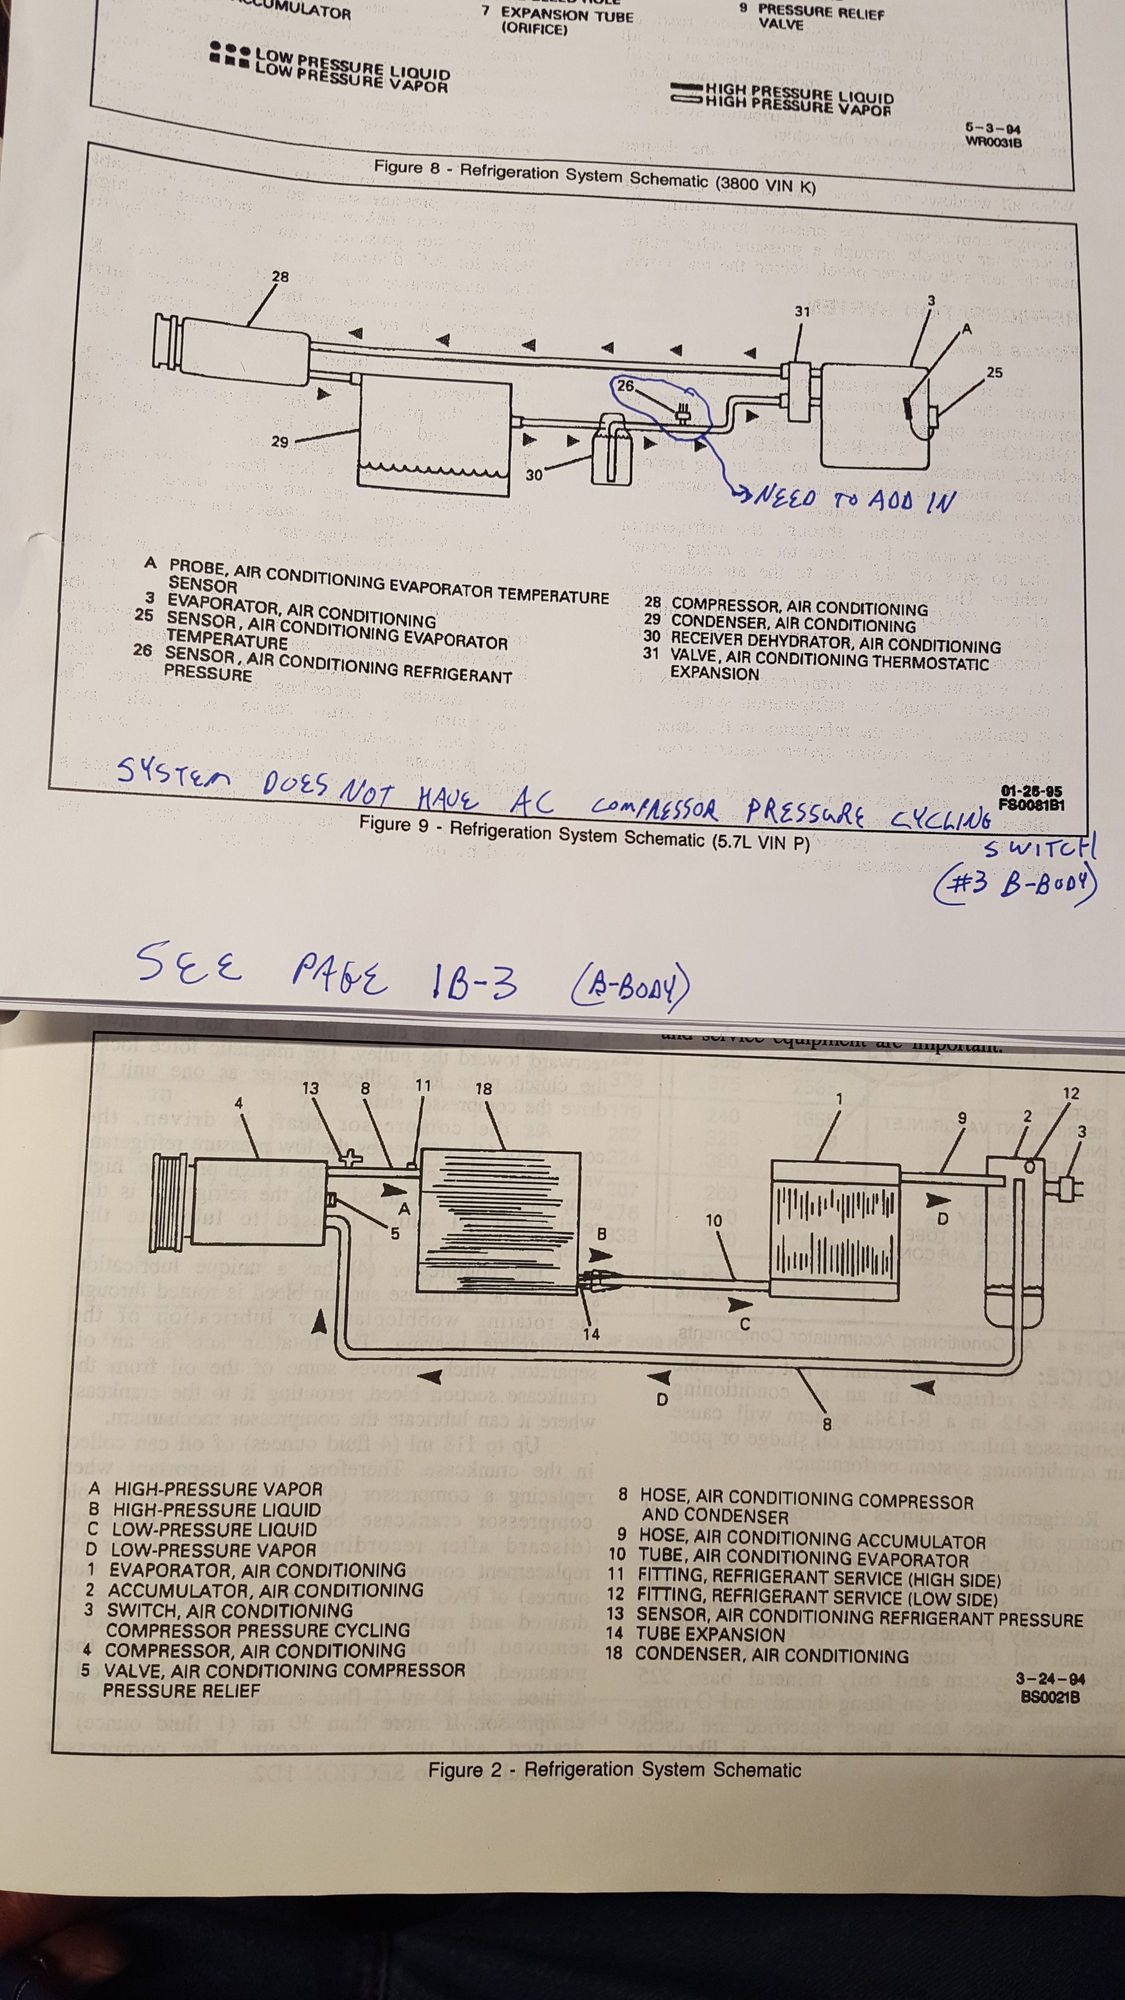 ACCUMULATOR
7 EXPANSION TUBE
(ORIFICE)
9 PRESSURE RELIEF
VALVE
LOW PRESSURE LIQUID
LOW PRESSURE VAPOR
HIGH PRESSURE LIQUID
HIGH PRESSURE VAPOR
5-3-94
WR0031B
Figure 8 - Refrigeration System Schematic (3800 VIN K)
28
31
3
A
25
26
29
30
NEED TO ADD IN
A PROBE, AIR CONDITIONING EVAPORATOR TEMPERATURE
SENSOR
3 EVAPORATOR, AIR CONDITIONING
25 SENSOR, AIR CONDITIONING EVAPORATOR
TEMPERATURE
26 SENSOR, AIR CONDITIONING REFRIGERANT
PRESSURE
28 COMPRESSOR, AIR CONDITIONING
29 CONDENSER, AIR CONDITIONING
30 RECEIVER DEHYDRATOR, AIR CONDITIONING
31 VALVE, AIR CONDITIONING THERMOSTATIC
EXPANSION
01-26-95
FS0081B1
SYSTEM DOES NOT HAVE AC COMPRESSOR PRESSURE CYCLING
SWITCH
(#3 B-BODY)
Figure 9 - Refrigeration System Schematic (5.7L VIN P)
SEE PAGE 1B-3 (B-BODY)
and service equipment are important.
4
13
8
11
18
1
9
2
12
3
A
5
B
10
D
C
14
D
8
A HIGH-PRESSURE VAPOR
B HIGH-PRESSURE LIQUID
C LOW-PRESSURE LIQUID
D LOW-PRESSURE VAPOR
1 EVAPORATOR, AIR CONDITIONING
2 ACCUMULATOR, AIR CONDITIONING
3 SWITCH, AIR CONDITIONING
COMPRESSOR PRESSURE CYCLING
4 COMPRESSOR, AIR CONDITIONING
5 VALVE, AIR CONDITIONING COMPRESSOR
PRESSURE RELIEF
8 HOSE, AIR CONDITIONING COMPRESSOR
AND CONDENSER
9 HOSE, AIR CONDITIONING ACCUMULATOR
10 TUBE, AIR CONDITIONING EVAPORATOR
11 FITTING, REFRIGERANT SERVICE (HIGH SIDE)
12 FITTING, REFRIGERANT SERVICE (LOW SIDE)
13 SENSOR, AIR CONDITIONING REFRIGERANT PRESSURE
14 TUBE EXPANSION
18 CONDENSER, AIR CONDITIONING
3-24-94
BS0021B
Figure 2 - Refrigeration System Schematic